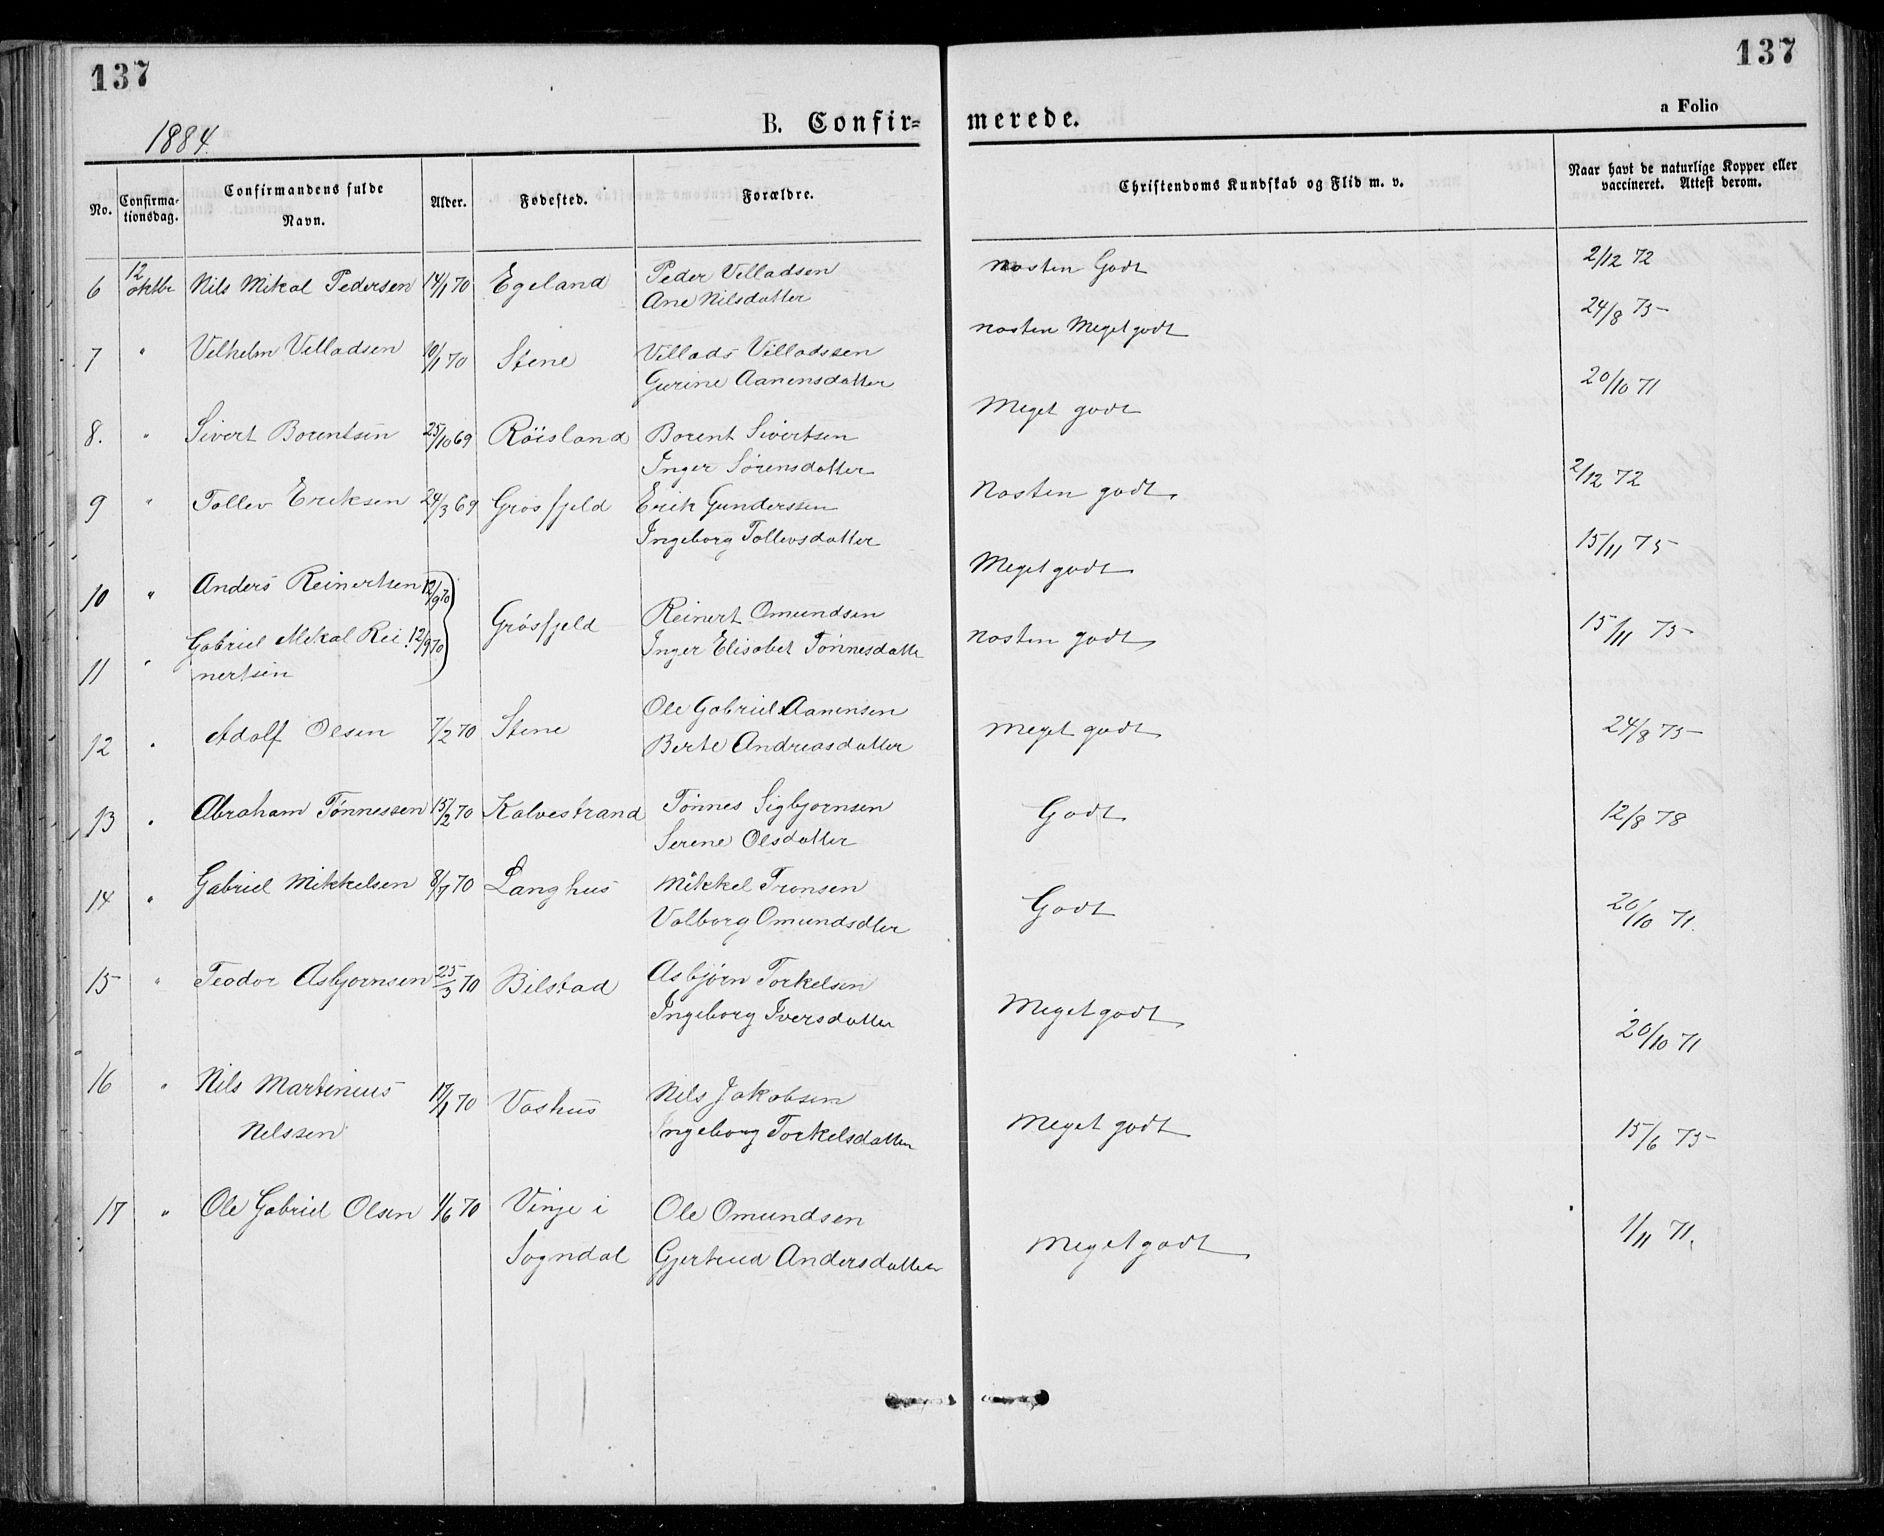 137
137
a Folio
1884.
B. Confir-
merede.
No.
Confirma-
tionsdag.
Confirmandens fulde
Navn.
Alder.
Fødested.
Forældre.
Christendoms Kundskab og Flid m. v.
Naar havt de naturlige Kopper eller
vaccineret. Attest derom.
6 12 oktbr Nils Mikal Pedersen 14/1 70 Egeland Peder Villadsen Nasten Godt 2/12 72
Ane Nilsdatter
7 " Vilhelm Villadsen 10/1 70 Stene Villads Villadssen nasten Meget godt 24/8 75
Gurine Aanensdatter
8. " Sivert Borentsen 25/10 69 Röisland Borent Sivertsen Meget godt 20/10 71
Inger Sörensdatter
9 " Tollev Eriksen 24/3 69 Grøsfjeld Erik Gunderssen Nasten godt 2/12 72
Ingeborg Tollevsdatter
10 " Anders Reinertsen 12/9 70 Meget godt 15/11 75
Grøsfjeld Reinert Omundsen
11 " Gabriel Mikal Rei: 12/9 70 Inger Elisabet Tønnesdatte nasten godt 15/11 75
nertsen
12 " Adolf Olsen 7/2 70 Stene Ole Gabriel Aanensen Meget godt 24/8 75
Berte Andreasdatter
13 " Abraham Tønnessen 15/2 70 Kalvestrand Tönnes Sigbjørnsen Godt 12/8 78
Serene Olsdatter
14 " Gabriel Mikkelsen 8/7 70 Langhus Mikkel Tronsen Godt 20/10 71.
Valborg Omundsdter
15 " Teodor Asbjornsen 25/3 70 Bilstad Asbjørn Torkelsen Meget godt 20/10 71
Ingeborg Iversdatter
16 " Nils Martinius 17/1 70 Vashus Nils Jakobsen Meget godt 15/6 75
Nilssen Ingeborg Torkelsdatter
17 " Ole Gabriel Olsen 1/6 70 Vinje i Ole Omundsen Meget godt 1/11 71.
Sogndal Gjertrud Andersdatter